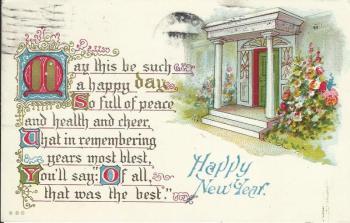 May this be such
a happy day
So full of peace
and health and cheer,
That in remembering
years most blest,
You'll say: "Of all,
that was the best."
Happy
New Year.